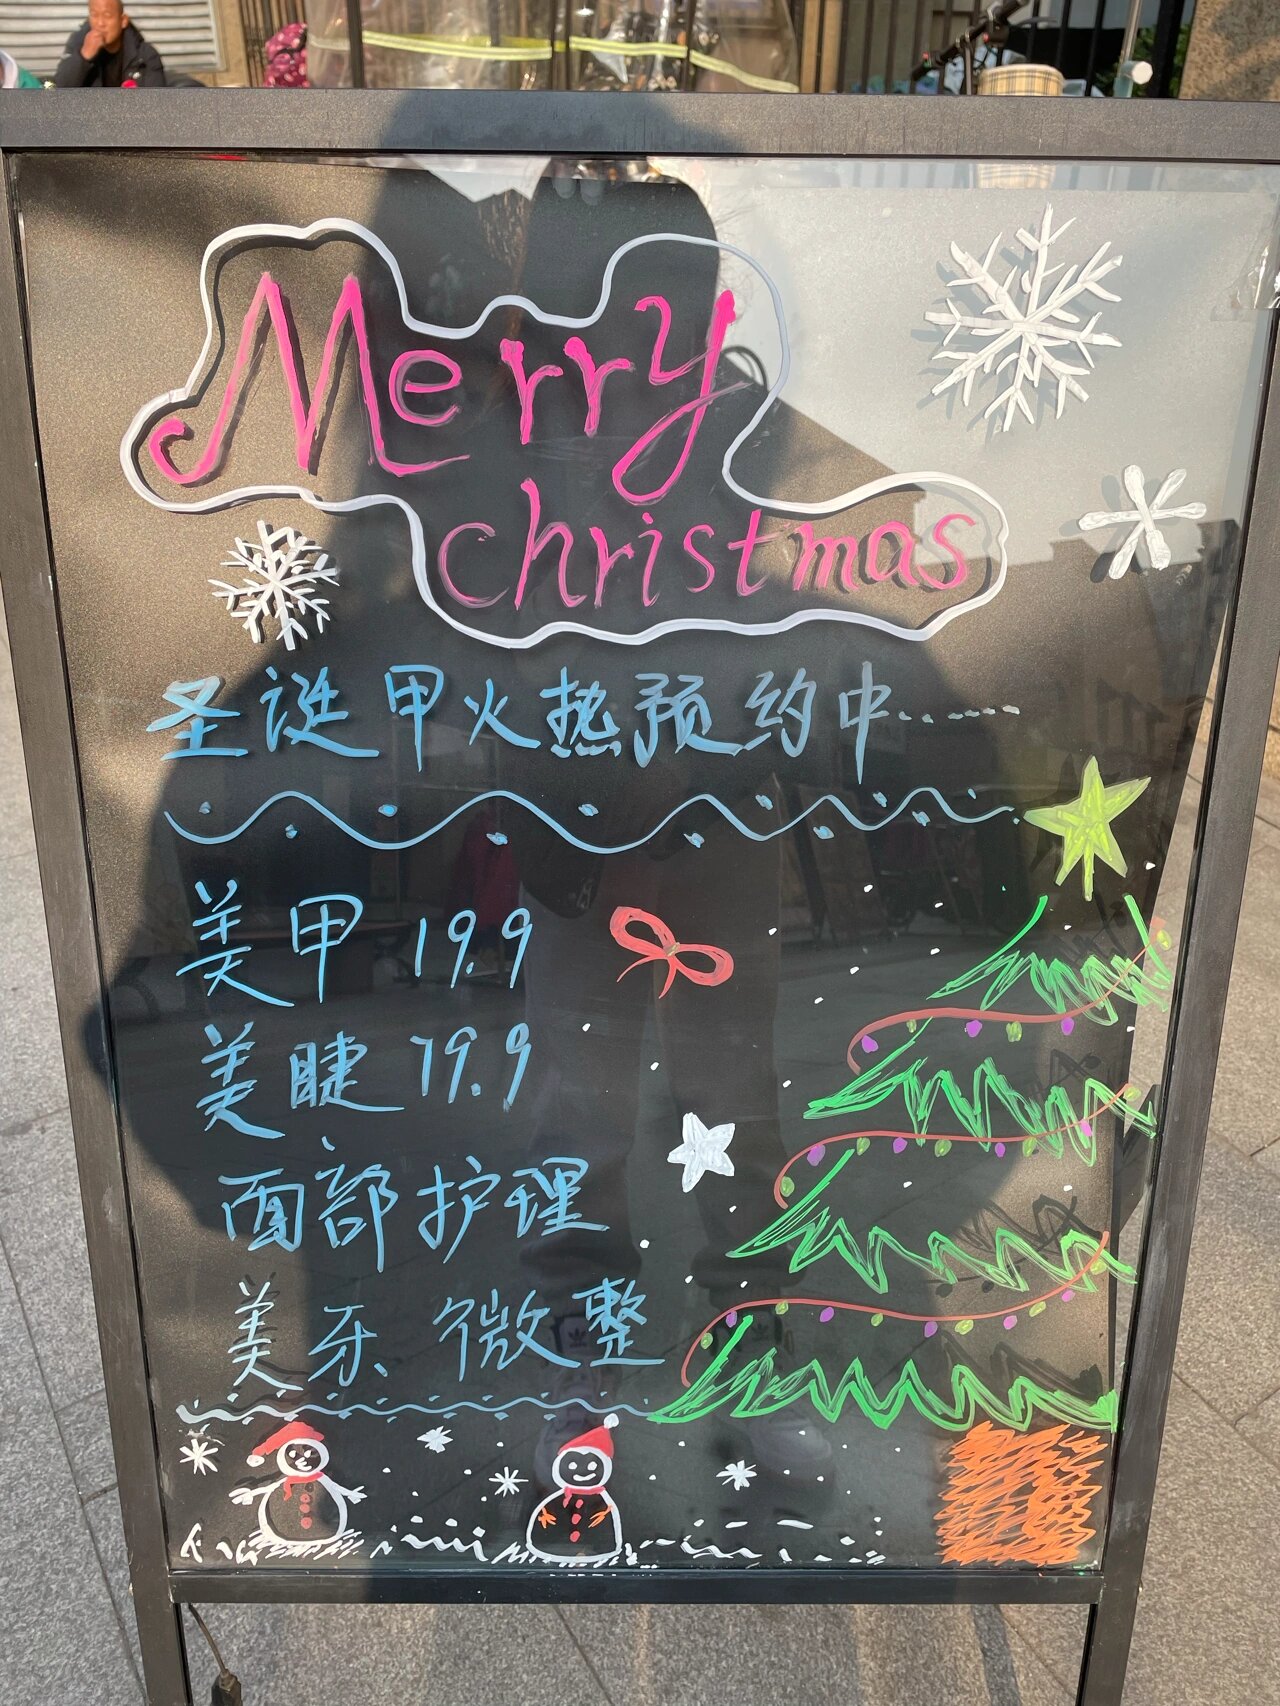 Merry
christmas
圣诞甲火热预约中......
美甲 19.9
美睫 79.9
面部护理
美牙 微整